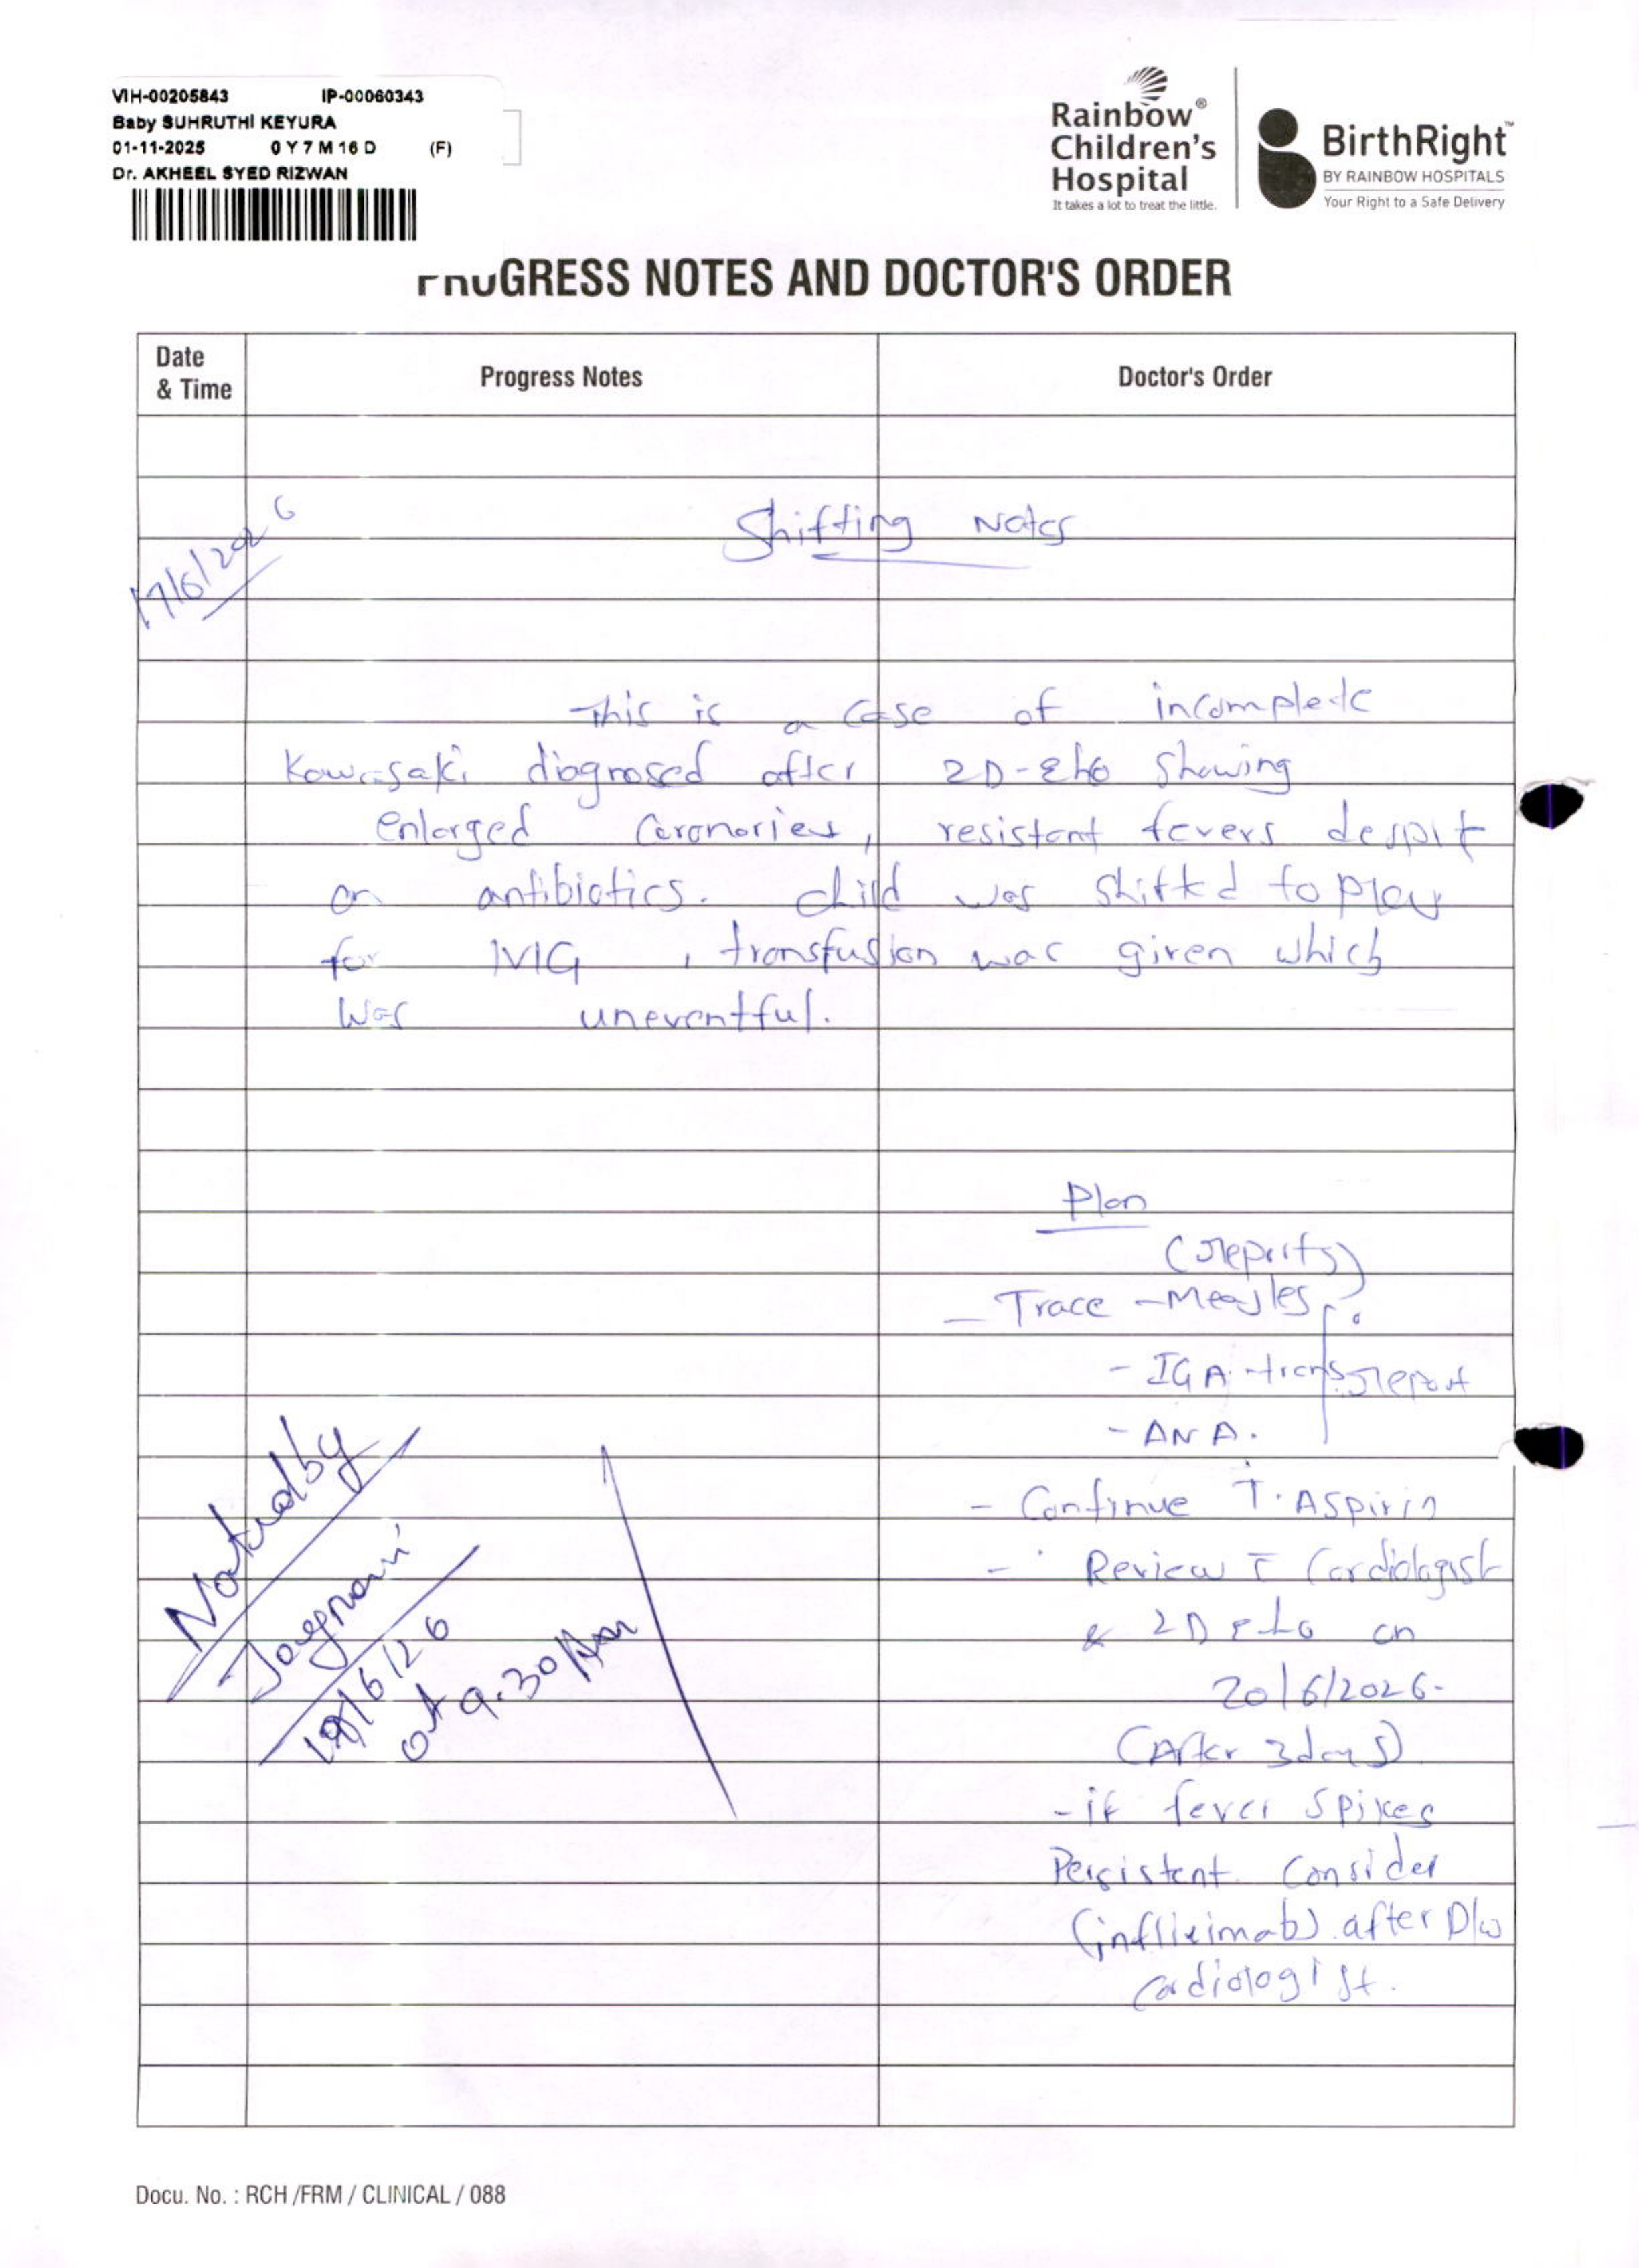 VIH-00205843 IP-00060343
Baby SUHRUTHI KEYURA
01-11-2025 0 Y 7 M 16 D (F)
Dr. AKHEEL SYED RIZWAN
Rainbow®
Children's
Hospital
It takes a lot to treat the little.
BirthRight™
BY RAINBOW HOSPITALS
Your Right to a Safe Delivery
PROGRESS NOTES AND DOCTOR'S ORDER
Date
& Time
Progress Notes
Doctor's Order
17/6/2026
Shifting Notes
This is a case of incomplete
Kawasaki diagnosed after 2D-Eho showing
enlarged Coronaries, resistant fevers despit
on antibiotics. child was shifted to
for IVIG, transfusion was given which
was uneventful.
Plan
(reports)
- Trace - Measles
- IGA report
- ANA.
- Continue T. Aspirin
- Review c Cardiologist
& 2D Eho on
20/6/2026.
(After 3 days)
- if fever spikes
Persistent Consider
(infliximab) after D/w
cardiologist.
/6/26
at 9.30 Am
Docu. No. : RCH /FRM / CLINICAL / 088